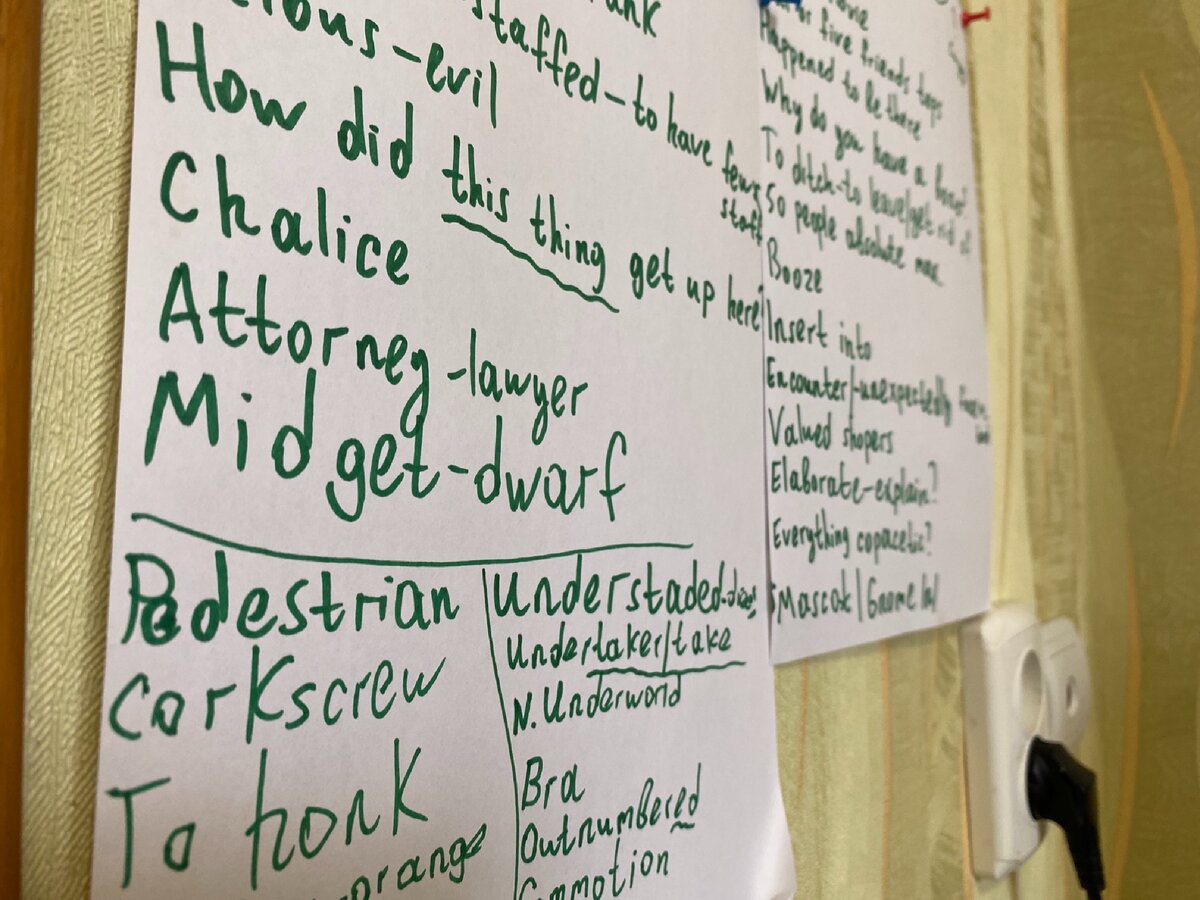 staffed-to have fewer
staff
-evil
How did this thing get up here?
Chalice
Attorney-lawyer
Midget-dwarf
Pedestrian
Corkscrew
To honk
orange
Understaded
Undertaker/take
N. Underworld
Bra
Outnumbered
Commotion
or five friends tops
Happened to be there
Why do you have a
To ditch-to leave/get rid of
So people absolute max
Booze
Insert into
Encounter/-unexpectedly
Valued shopers
Elaborate-explain?
Everything copacetic?
Mascot/Gnome